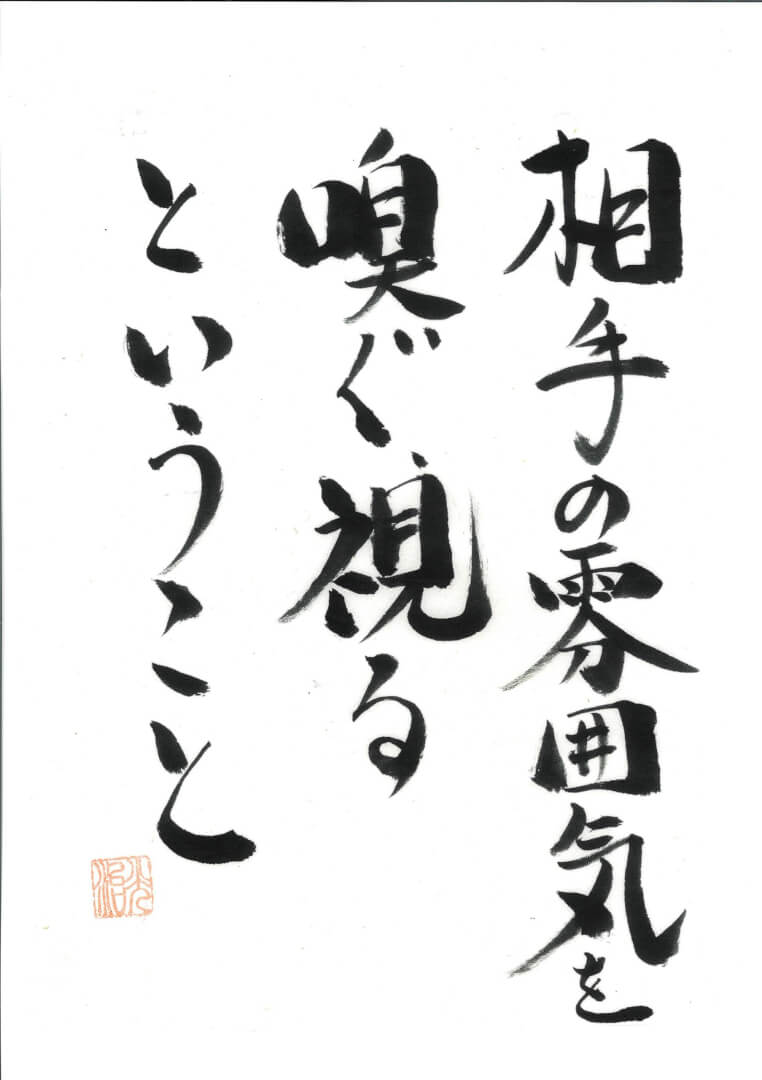 相手の雰囲気を
嗅ぐ視る
ということ